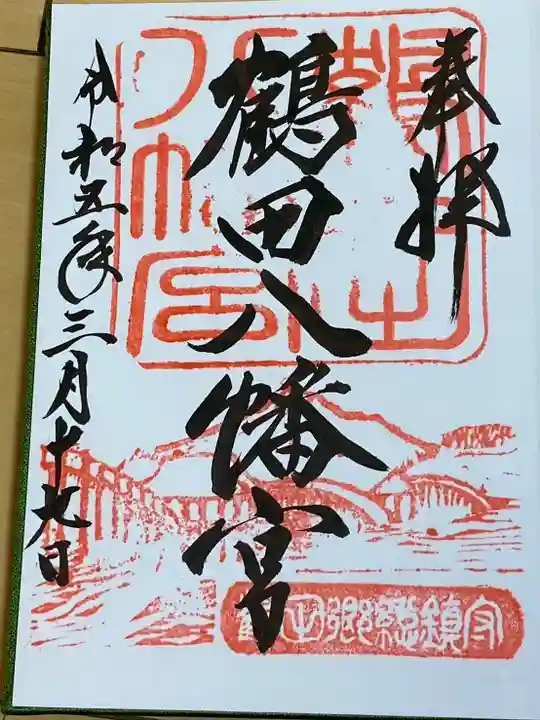 奉拝
鶴田八幡宮
令和五年三月十七日